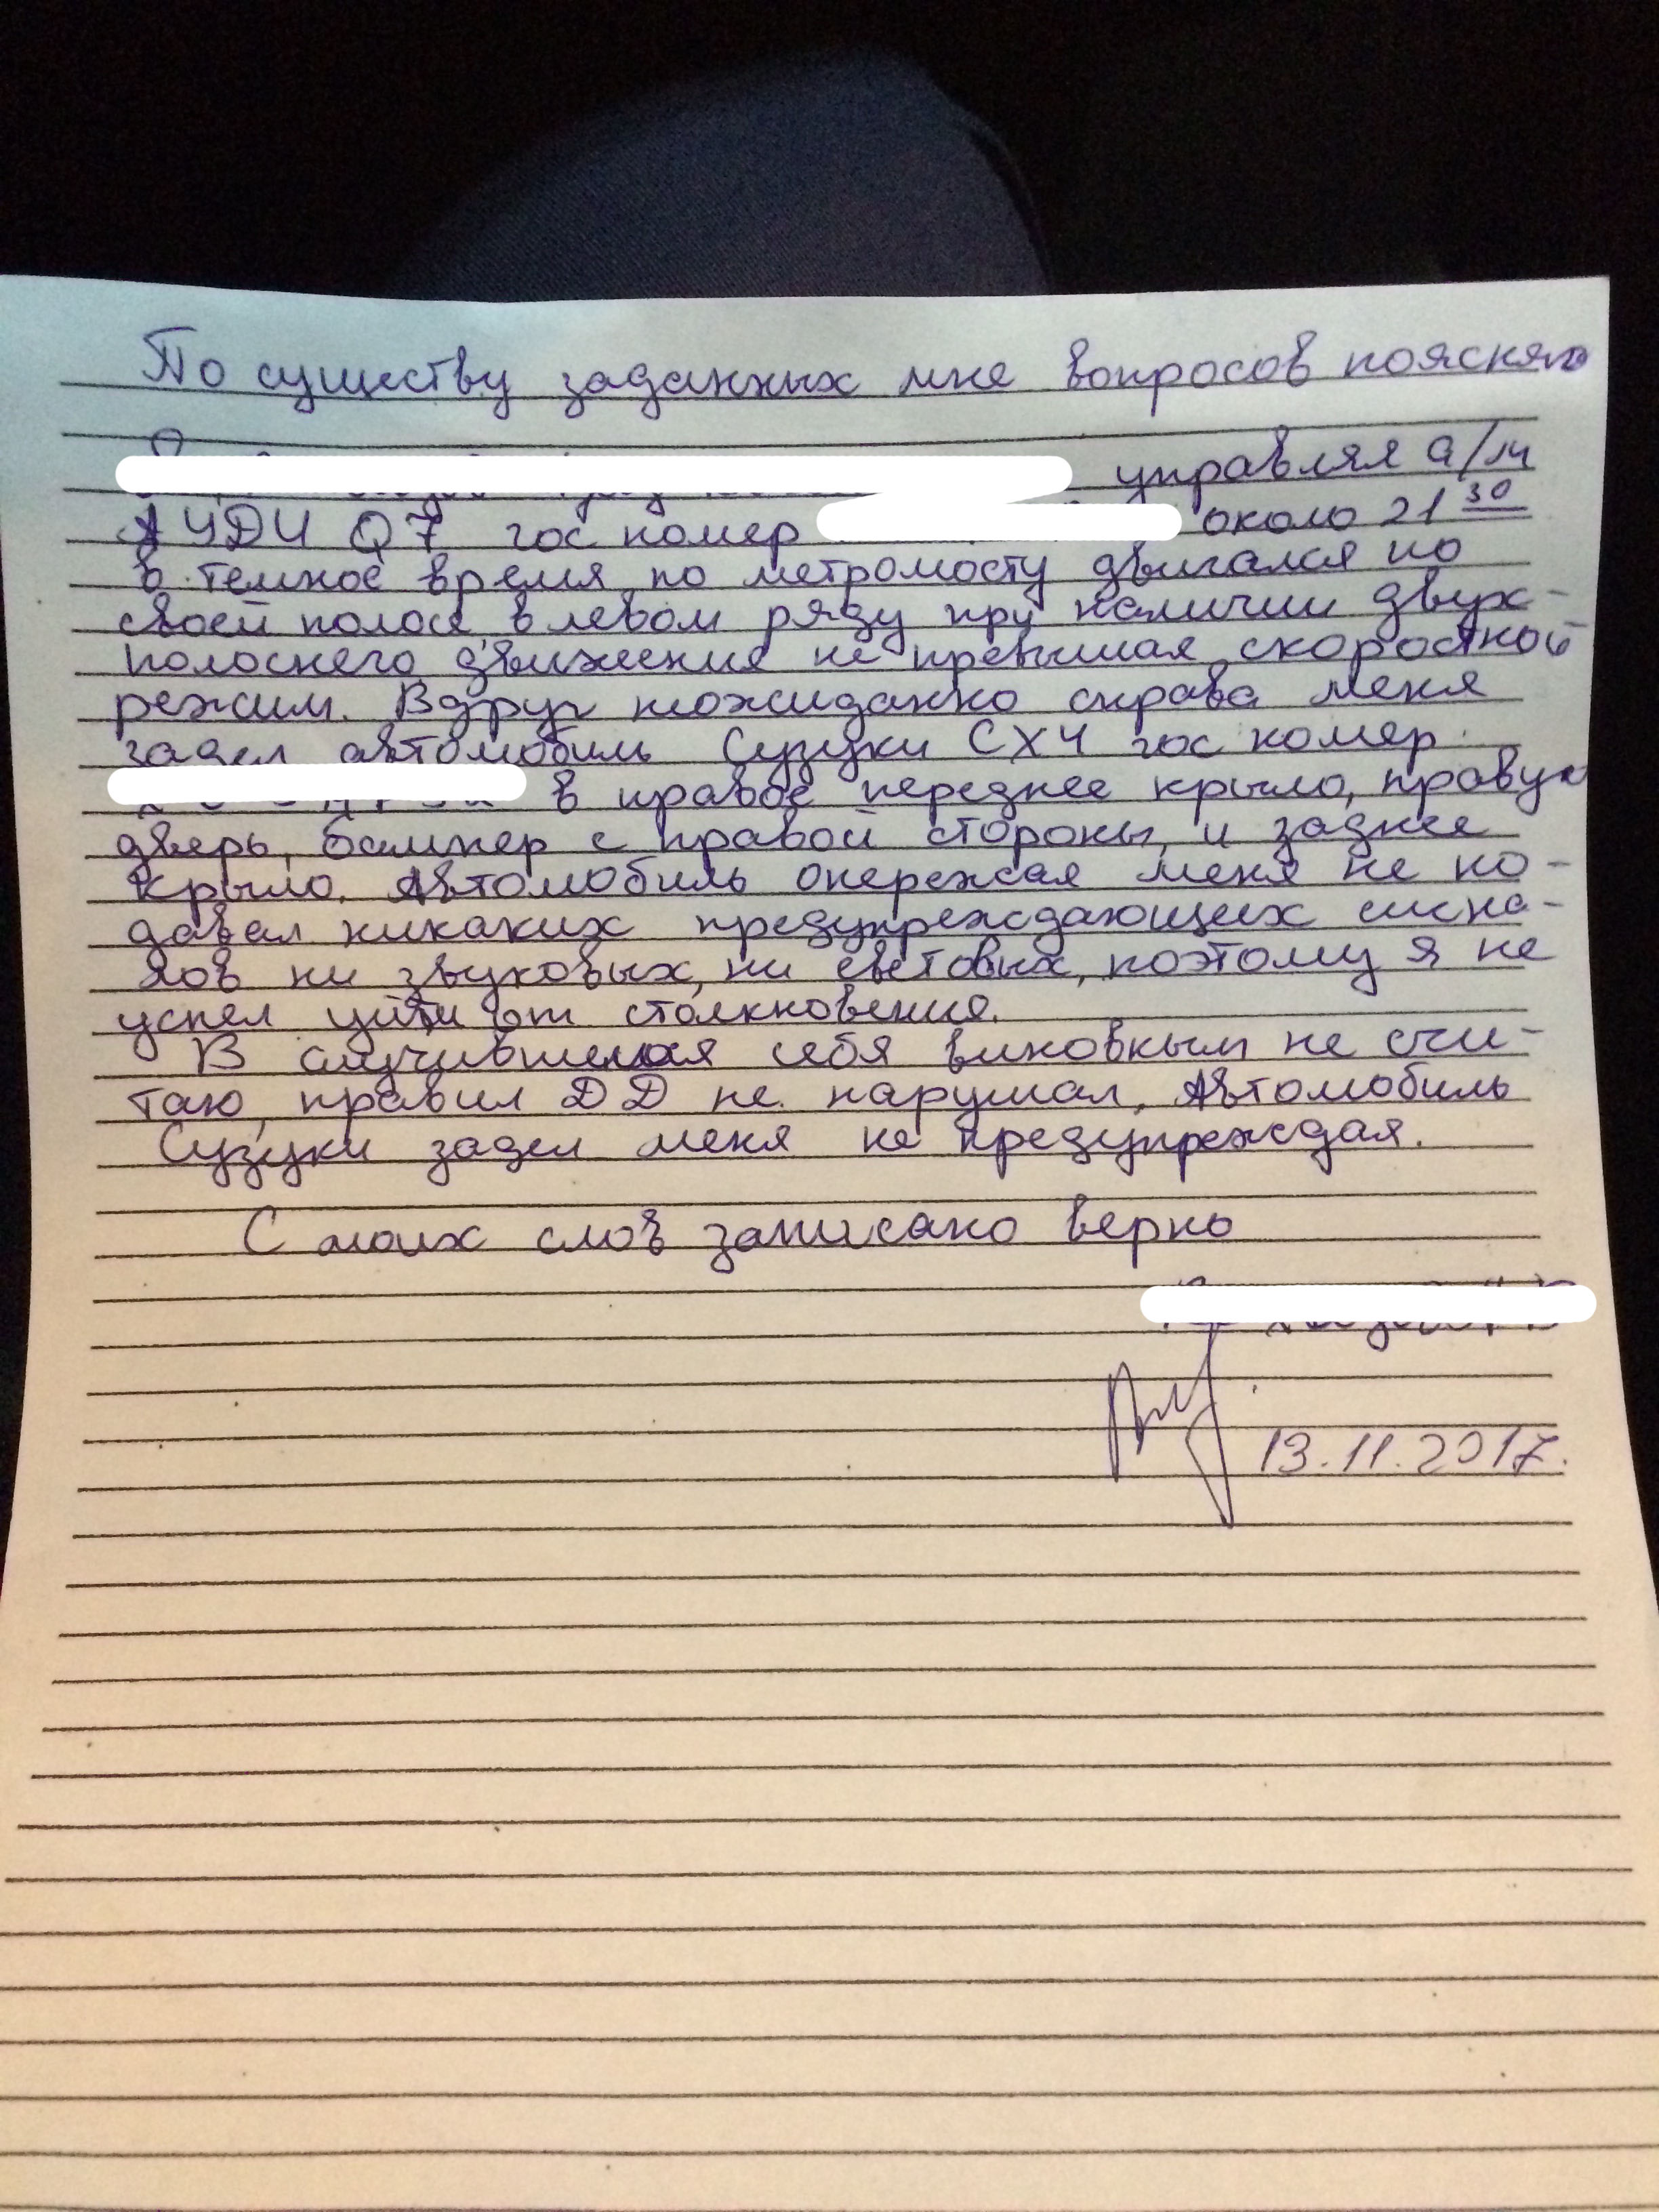 По существу заданных мне вопросов поясняю
управлял а/м
АУДИ Q7 гос номер около 21 30
в темное время по метромосту двигался по
своей полосе, в левом ряду при наличии двух-
полоснего движения не превышая скоростной
режим. Вдруг неожиданно справа меня
задел автомобиль Сузуки СХ4 гос номер
в правое переднее крыло, правую
дверь, бампер с правой стороны, и заднее
крыло. Автомобиль опережая меня не по-
давал никаких предупреждающих сигна-
лов ни звуковых, ни световых, поэтому я не
успел уйти от столкновения.
В случившемся себя виновным не счи-
таю, правил ДД не нарушал, Автомобиль
Сузуки задел меня не предупреждая.
С моих слов записано верно
13.11.2017.